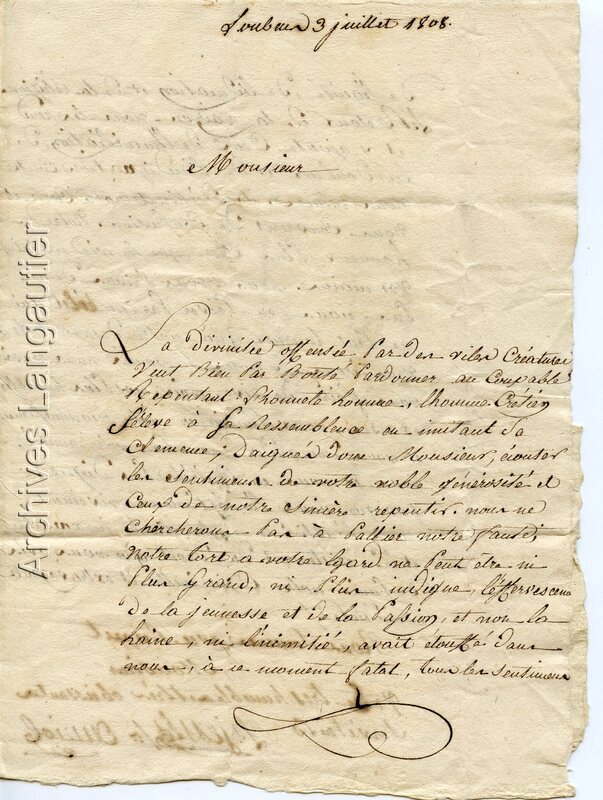 Loubans 3 juillet 1808.
Monsieur
La divinité offensée par des viles Créatures
veut Bien Par Bonté Pardonner au Coupable
Repentant L'honnete homme, l'homme Cretien
s'éleve à sa Ressemblence en imitant sa
clemence; Daignés donc Monsieur, écouter
les sentimens de votre noble générosité et
Ceux de notre sincère repentir. nous ne
Chercherons Pas à Pallier notre faute,
Notre tort à votre égard ne Peut être ni
Plus Grand, ni Plus indigne, l'effervescence
de la jeunesse et de la Passion, et non la
haine, ni l'inimitié, avait etouffé dans
nous, à ce moment fatal, tous les sentimens
Archives Langautier